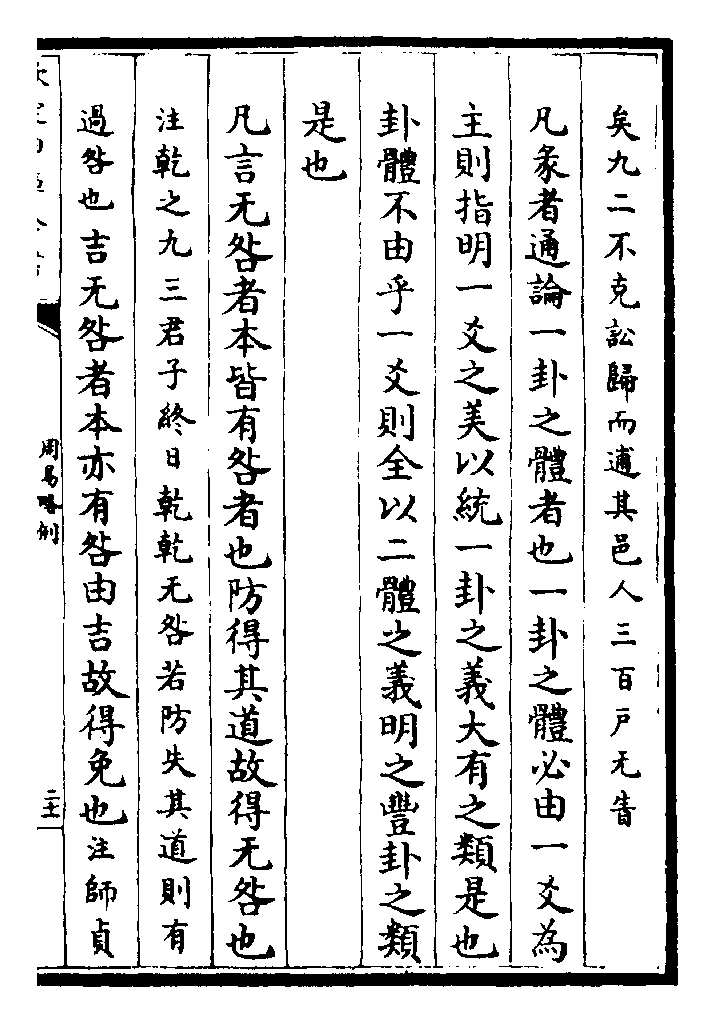 矣九二不克訟歸而逋其邑人三百戶无眚
凡彖者通論一卦之體者也一卦之體必由一爻為
主則指明一爻之美以統一卦之義大有之類是也
卦體不由乎一爻則全以二體之義明之豐卦之類
是也
凡言无咎者本皆有咎者也防得其道故得无咎也
注乾之九三君子終日乾乾无咎若防失其道則有
過咎也吉无咎者本亦有咎由吉故得免也注師貞
周易略例
二十